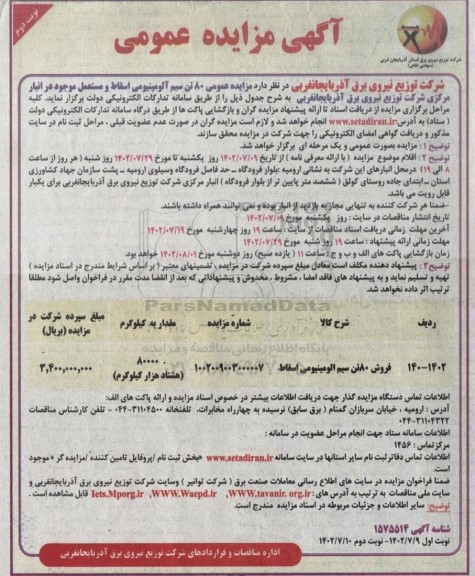 نوبت دوم
آگهی مزایده عمومی
شرکت توزیع نیروی برق استان آذربایجان غربی
(سهامی خاص)
شرکت توزیع نیروی برق آذربایجانغربی در نظر دارد مزایده عمومی ۸۰ تن سیم آلومینیومی اسقاط و مستعمل موجود در انبار
مرکزی شرکت توزیع نیروی برق آذربایجانغربی به شرح جدول ذیل را از طریق سامانه تدارکات الکترونیکی دولت برگزار نماید. کلیه
مراحل برگزاری مزایده از دریافت اسناد تا ارائه پیشنهاد مزایده گران و بازگشایی پاکت ها از طریق درگاه سامانه تدارکات الکترونیکی دولت
( ستاد) به آدرس:www.setadiran.ir انجام خواهد شد و لازم است مزایده گران در صورت عدم عضویت قبلی ، مراحل ثبت نام در سایت
مذکور و دریافت گواهی امضای الکترونیکی را جهت شرکت در مزایده محقق سازند.
توضیح ۱ : مزایده بصورت عمومی و یک مرحله ای برگزار خواهد شد.
توضیح ۲ : اقلام موضوع مزایده ( با ارائه معرفی نامه ) از تاریخ ۱۴۰۲/۰۷/۰۹ روز یکشنبه تا مورخ ۱۴۰۲/۰۷/۲۹ روز شنبه ( هر روز از ساعت
۸ الی ۱۹) درمحل انبارهای این شرکت به نشانی ارومیه :بلوار فرودگاه ــ حد فاصل فرودگاه وسیلوی ارومیه ــ پشت سازمان جهاد کشاورزی
استان ــ ابتدای جاده روستای کولق ( ششصد متر پایین تر از بلوار فرودگاه ) انبار مرکزی شرکت توزیع نیروی برق آذربایجانغربی برای یکبار
قابل رویت می باشد.
-ضمنا هر شرکت کننده به تنهایی مجاز به بازدید از انبار بوده و نمی توانند همراه داشته باشند.
تاریخ انتشار مناقصات در سایت : روز یکشنبه مورخ ۱۴۰۲/۰۷/۰۹
آخرین مهلت زمانی دریافت اسناد مناقصات از سایت : ساعت ۱۹ روز چهارشنبه مورخ ۱۴۰۲/۰۷/۱۹
مهلت زمانی ارائه پیشنهاد : ساعت ۱۹ روز شنبه مورخ ۱۴۰۲/۰۷/۲۹
زمان بازگشایی پاکت های الف و ب و ج : ساعت ۱۱ ( یازده صبح) روز دوشنبه مورخ ۱۴۰۲/۰۸/۰۱ خواهد بود.
توضیح۳ : پیشنهاد دهنده مکلف است معادل مبلغ سپرده شرکت در مزایده ، تضمینهای معتبر ( بر اساس شرایط مندرج در اسناد مزایده )
تهیه و تسلیم نماید و به پیشنهاد های فاقد امضا ، مشروط ، مخدوش و پیشنهاداتی که بعد از انقضا مدت مقرر در فراخوان واصل شود مطلقا
ترتیب اثر داده نخواهد شد.
ParsNamadData
پایگاه اطلاع رسانی مناقصه و مزایده
ردیف شرح کالا شماره مزایده مقدار به کیلوگرم مبلغ سپرده شرکت در مزایده (بریال)
۱۴۰۲-۱۴۰۰ فروش ۸۰تن سیم الومینیومی اسقاط ۱۰۰۲۰۰۹۰۰۳۰۰۰۰۰۷ ۸۰۰۰۰ (هشتاد هزار کیلوگرم) ۳,۴۰۰,۰۰۰,۰۰۰
اطلاعات تماس دستگاه مزایده گذار جهت دریافت اطلاعات بیشتر در خصوص اسناد مزایده و ارائه پاکت های الف:
آدرس : ارومیه ، خیابان سربازان گمنام ( برق سابق) نرسیده به چهارراه مخابرات، تلفنخانه ۳۱۱۰۴۵۰۰-۰۴۴ - تلفن کارشناس مناقصات
۰۴۴-۳۱۱۰۴۳۲۲
اطلاعات سامانه ستاد جهت انجام مراحل عضویت در سامانه :
مرکز تماس : ۱۴۵۶
اطلاعات تماس دفاترثبت نام سایر استانها در سایت سامانه www.setadiran.ir «بخش ثبت نام /پروفایل تامین کننده /مزایده گر »موجود
است.
ضمنا فراخوان مزایده در سایت های اطلاع رسانی معاملات صنعت برق ( شرکت توانیر ) وسایت شرکت توزیع نیروی برق آذربایجانغربی و
سایت ملی مناقصات به ترتیب به آدرس های : WWW.tavanir.org.ir، WWW.Waepd.ir، Iets.Mporg.ir قابل مشاهده است .
توضیح: سایر اطلاعات و جزئیات مربوطه در اسناد مزایده مندرج است.
شناسه آگهی ۱۵۷۵۵۱۴
نوبت اول ۱۴۰۲/۷/۹- نوبت دوم ۱۴۰۲/۷/۱۰
اداره مناقصات و قراردادهای شرکت توزیع نیروی برق آذربایجانغربی